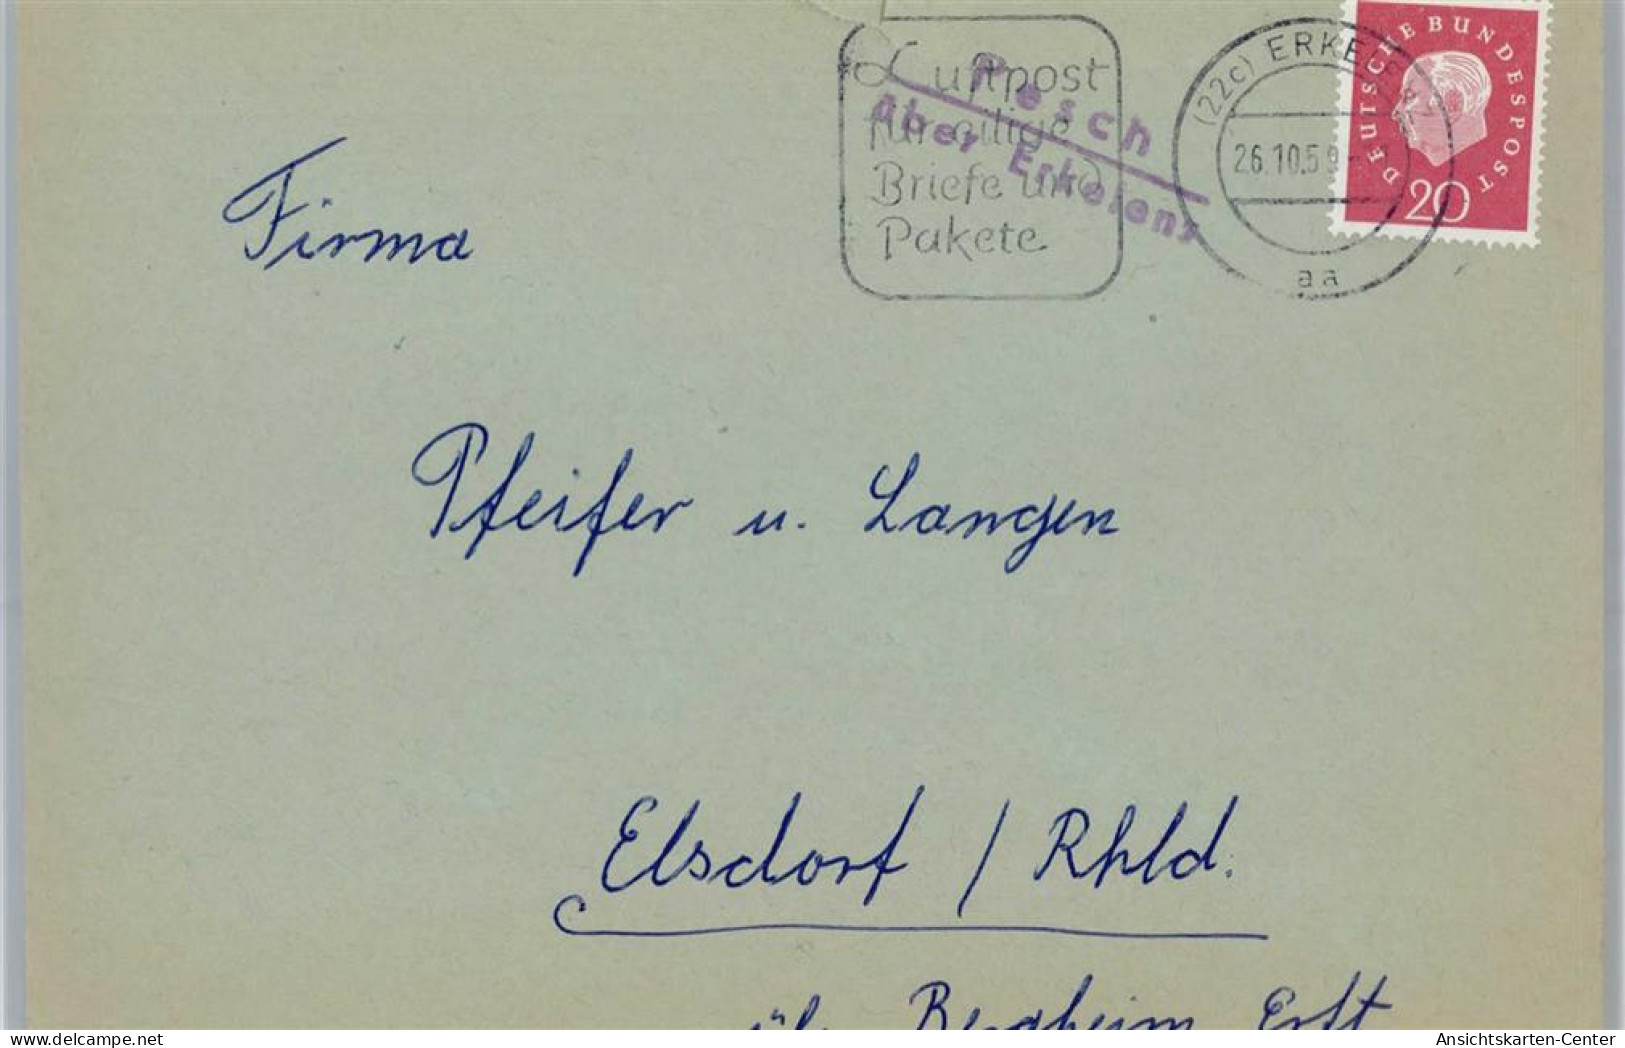 Luftpost
für eilige
Briefe und
Pakete
Pesch
über Erkelenz
(22c) ERKELENZ
26.10.59
aa
DEUTSCHE BUNDESPOST
20
Firma
Pfeifer u. Langen
Elsdorf / Rhld.
üb. Bergheim Erft
delcampe.net
Ansichtskarten-Center